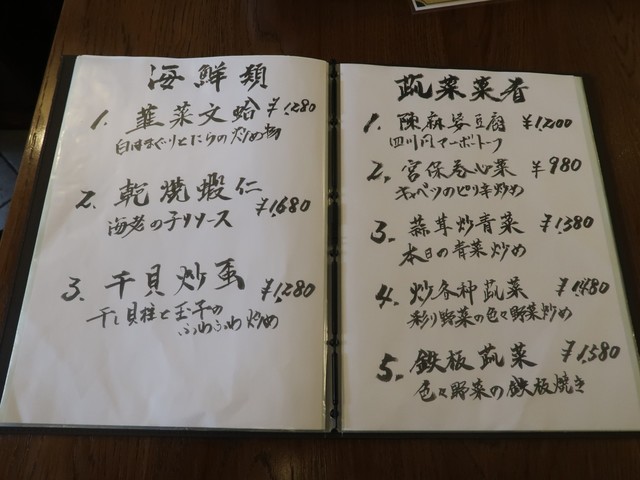 海鮮類
1. 韮菜文蛤 ¥1,280
白はまぐりとにらの炒め物
2. 乾焼蝦仁 ¥1,680
海老のチリソース
3. 干貝炒蛋 ¥1,280
干し貝柱と玉子の
ふわふわ炒め
蔬菜菜肴
1. 陳麻婆豆腐 ¥1,200
四川風マーボートーフ
2. 宮保卷心菜 ¥980
キャベツのピリ辛炒め
3. 蒜茸炒青菜 ¥1,380
本日の青菜炒め
4. 炒各种蔬菜 ¥1,480
彩り野菜の色々野菜炒め
5. 鉄板蔬菜 ¥1,580
色々野菜の鉄板焼き